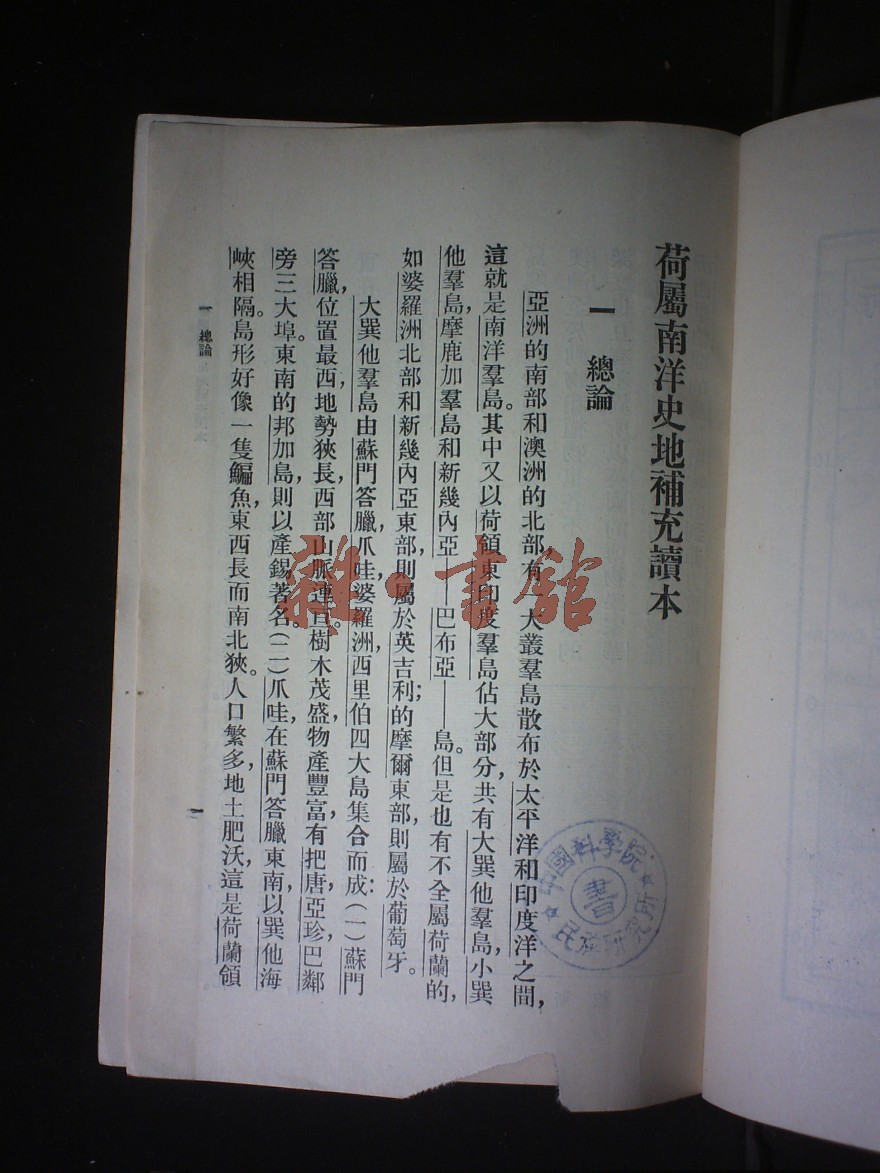 荷屬南洋史地補充讀本
一 總論
亞洲的南部和澳洲的北部有一大叢羣島散布於太平洋和印度洋之間，
這就是南洋羣島。其中又以荷領東印度羣島佔大部分，共有大巽他羣島，小巽
他羣島，摩鹿加羣島和新幾內亞——巴布亞——島。但是也有不全屬荷蘭的，
如婆羅洲北部和新幾內亞東部，則屬於英吉利；的摩爾東部，則屬於葡萄牙。
大巽他羣島由蘇門答臘，爪哇，婆羅洲，西里伯四大島集合而成：（一）蘇門
答臘，位置最西，地勢狹長，西部山脈連亘，樹木茂盛，物產豐富，有把唐，亞珍，巴鄰
旁三大埠。東南的邦加島，則以產錫著名。（二）爪哇，在蘇門答臘東南，以巽他海
峽相隔。島形好像一隻鯿魚，東西長而南北狹。人口繁多，地土肥沃，這是荷蘭領
一 總論
一
中國科學院
民族研究所
書
雜·書館